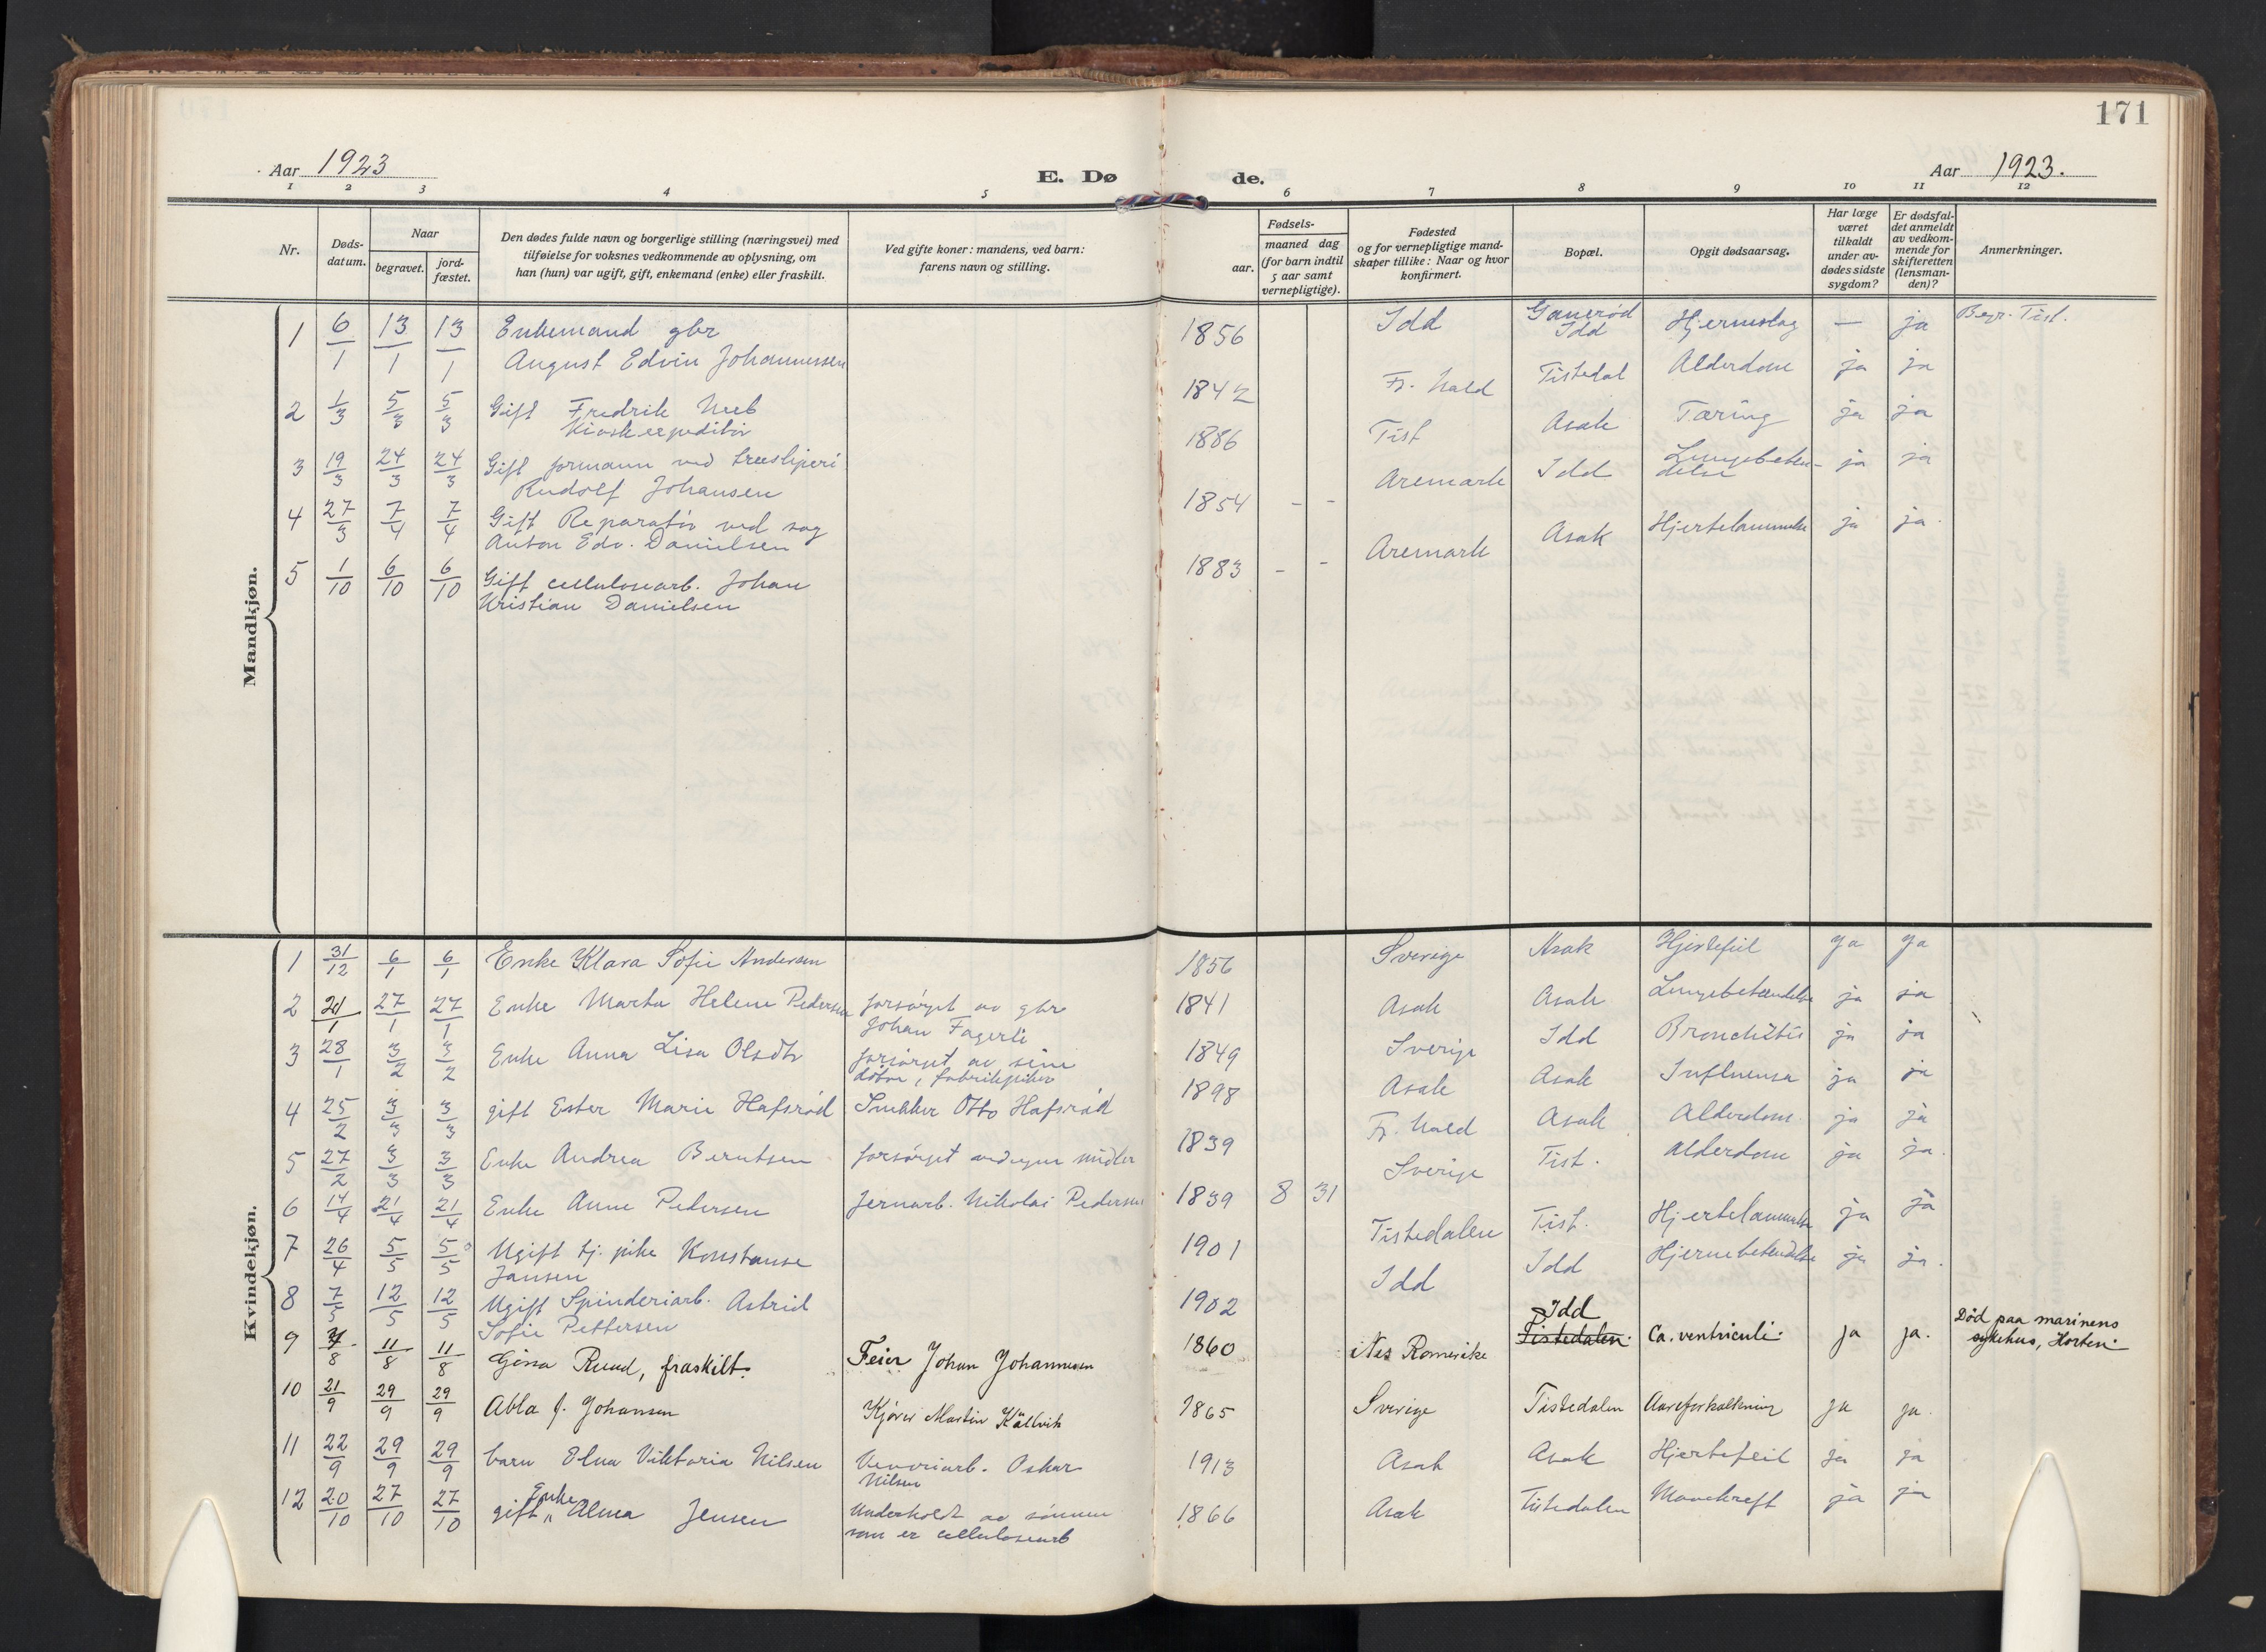 171
Aar 1923
E. Dø
de.
Aar 1923.
1 2 3 4 5 6 7 8 9 10 11 12
Nr.
Døds-
datum.
Naar
begravet.
jord-
fæstet.
Den dødes fulde navn og borgerlige stilling (næringsvei) med
tilføielse for voksnes vedkommende av oplysning, om
han (hun) var ugift, gift, enkemand (enke) eller fraskilt.
Ved gifte koner: mandens, ved barn:
farens navn og stilling.
Fødsels-
aar.
maaned dag
(for barn indtil
5 aar samt
vernepligtige).
Fødested
og for vernepligtige mand-
skaper tillike: Naar og hvor
konfirmert.
Bopæl.
Opgit dødsaarsag.
Har læge
været
tilkaldt
under av-
dødes sidste
sygdom?
Er dødsfal-
det anmeldt
av vedkom-
mende for
skifteretten
(lensman-
den)?
Anmerkninger.
Mandkjøn.
1 6/1 13/1 13/1 Enkemand gbr
August Edvin Johannessen
1856 Idd Ganerød
Idd Hjerneslag — ja Begr. Tist.
2 1/3 5/3 5/3 Gift Fredrik
Kioskexpeditör
1842 Fr. hald Tistedal Alderdom ja ja
3 19/3 24/3 24/3 Gift formann ved træsliperi
Rudolf Johansen
1886 Tist Asak Tæring ja ja
4 27/3 7/4 7/4 Gift Reparatör ved sag
Anton Edv. Danielsen
1854 - - Aremark Idd Lungebeten-
delse ja ja
5 1/10 6/10 6/10 Gift cellulosearb. Johan
Kristian Danielsen
1883 - - Aremark Asak Hjertelammelse ja ja.
Kvindekjøn.
1 31/12 6/1 6/1 Enke Klara Sofie Andersen
1856 Sverige Asak Hjertefeil ja ja
2 21/1 27/1 27/1 Enke Marta Helene Pedersen forsörget av gbr
Johan Fagerli
1841 Asak Asak Lungebetændelse ja ja
3 28/1 3/2 3/2 Enke Anna Lisa Olsdtr forsörget av sine
döttre, fabrikpiker
1849 Sverige Idd Bronchitis ja ja
4 25/2 3/3 3/3 gift Ester Marie Hafsröd Snekker Otto Hafsröd
1898 Asak Asak Influensa ja ja
5 27/2 3/3 3/3 Enke Andrea Berntsen forsörget ved egne midler
1839 Fr. hald Asak Alderdom. ja ja
6 14/4 21/4 21/4 Enke Anne Pedersen Jernarb. Nikolai Pedersen
1839 8 31 Sverige Tist. Alderdom ja ja.
7 26/4 5/5 5/5 Ugift tj. pike Konstanse
Jansen
1901 Tistedalen Tist. Hjertelammelse ja ja
8 7/5 12/5 12/5 Ugift Spinderiarb. Astrid
Sofie Pettersen
1902 Idd Idd Hjernebetendelse ja ja.
9 4/8 11/8 11/8 Gina Ruud, fraskilt. Feier Johan Johannesen
1860 Nes Romerike Idd
Tistedalen. Ca. ventriculi. ja ja. Död paa marinens
sykehus, Horten.
10 21/9 29/9 29/9 Abla J. Johansen Kjörer Martin Källvik
1865 Sverige Tistedalen Aareforkalkning ja ja.
11 22/9 29/9 29/9 barn Elna Viktoria Nilsen Veveriarb. Oskar
Nilsen
1913 Asak Asak Hjertefeil ja ja
Enke
12 20/10 27/10 27/10 gift " Alma Jensen Underholdt av sönnen
som er cellulosearb
1866 Asak Tistedalen Mavekreft ja ja